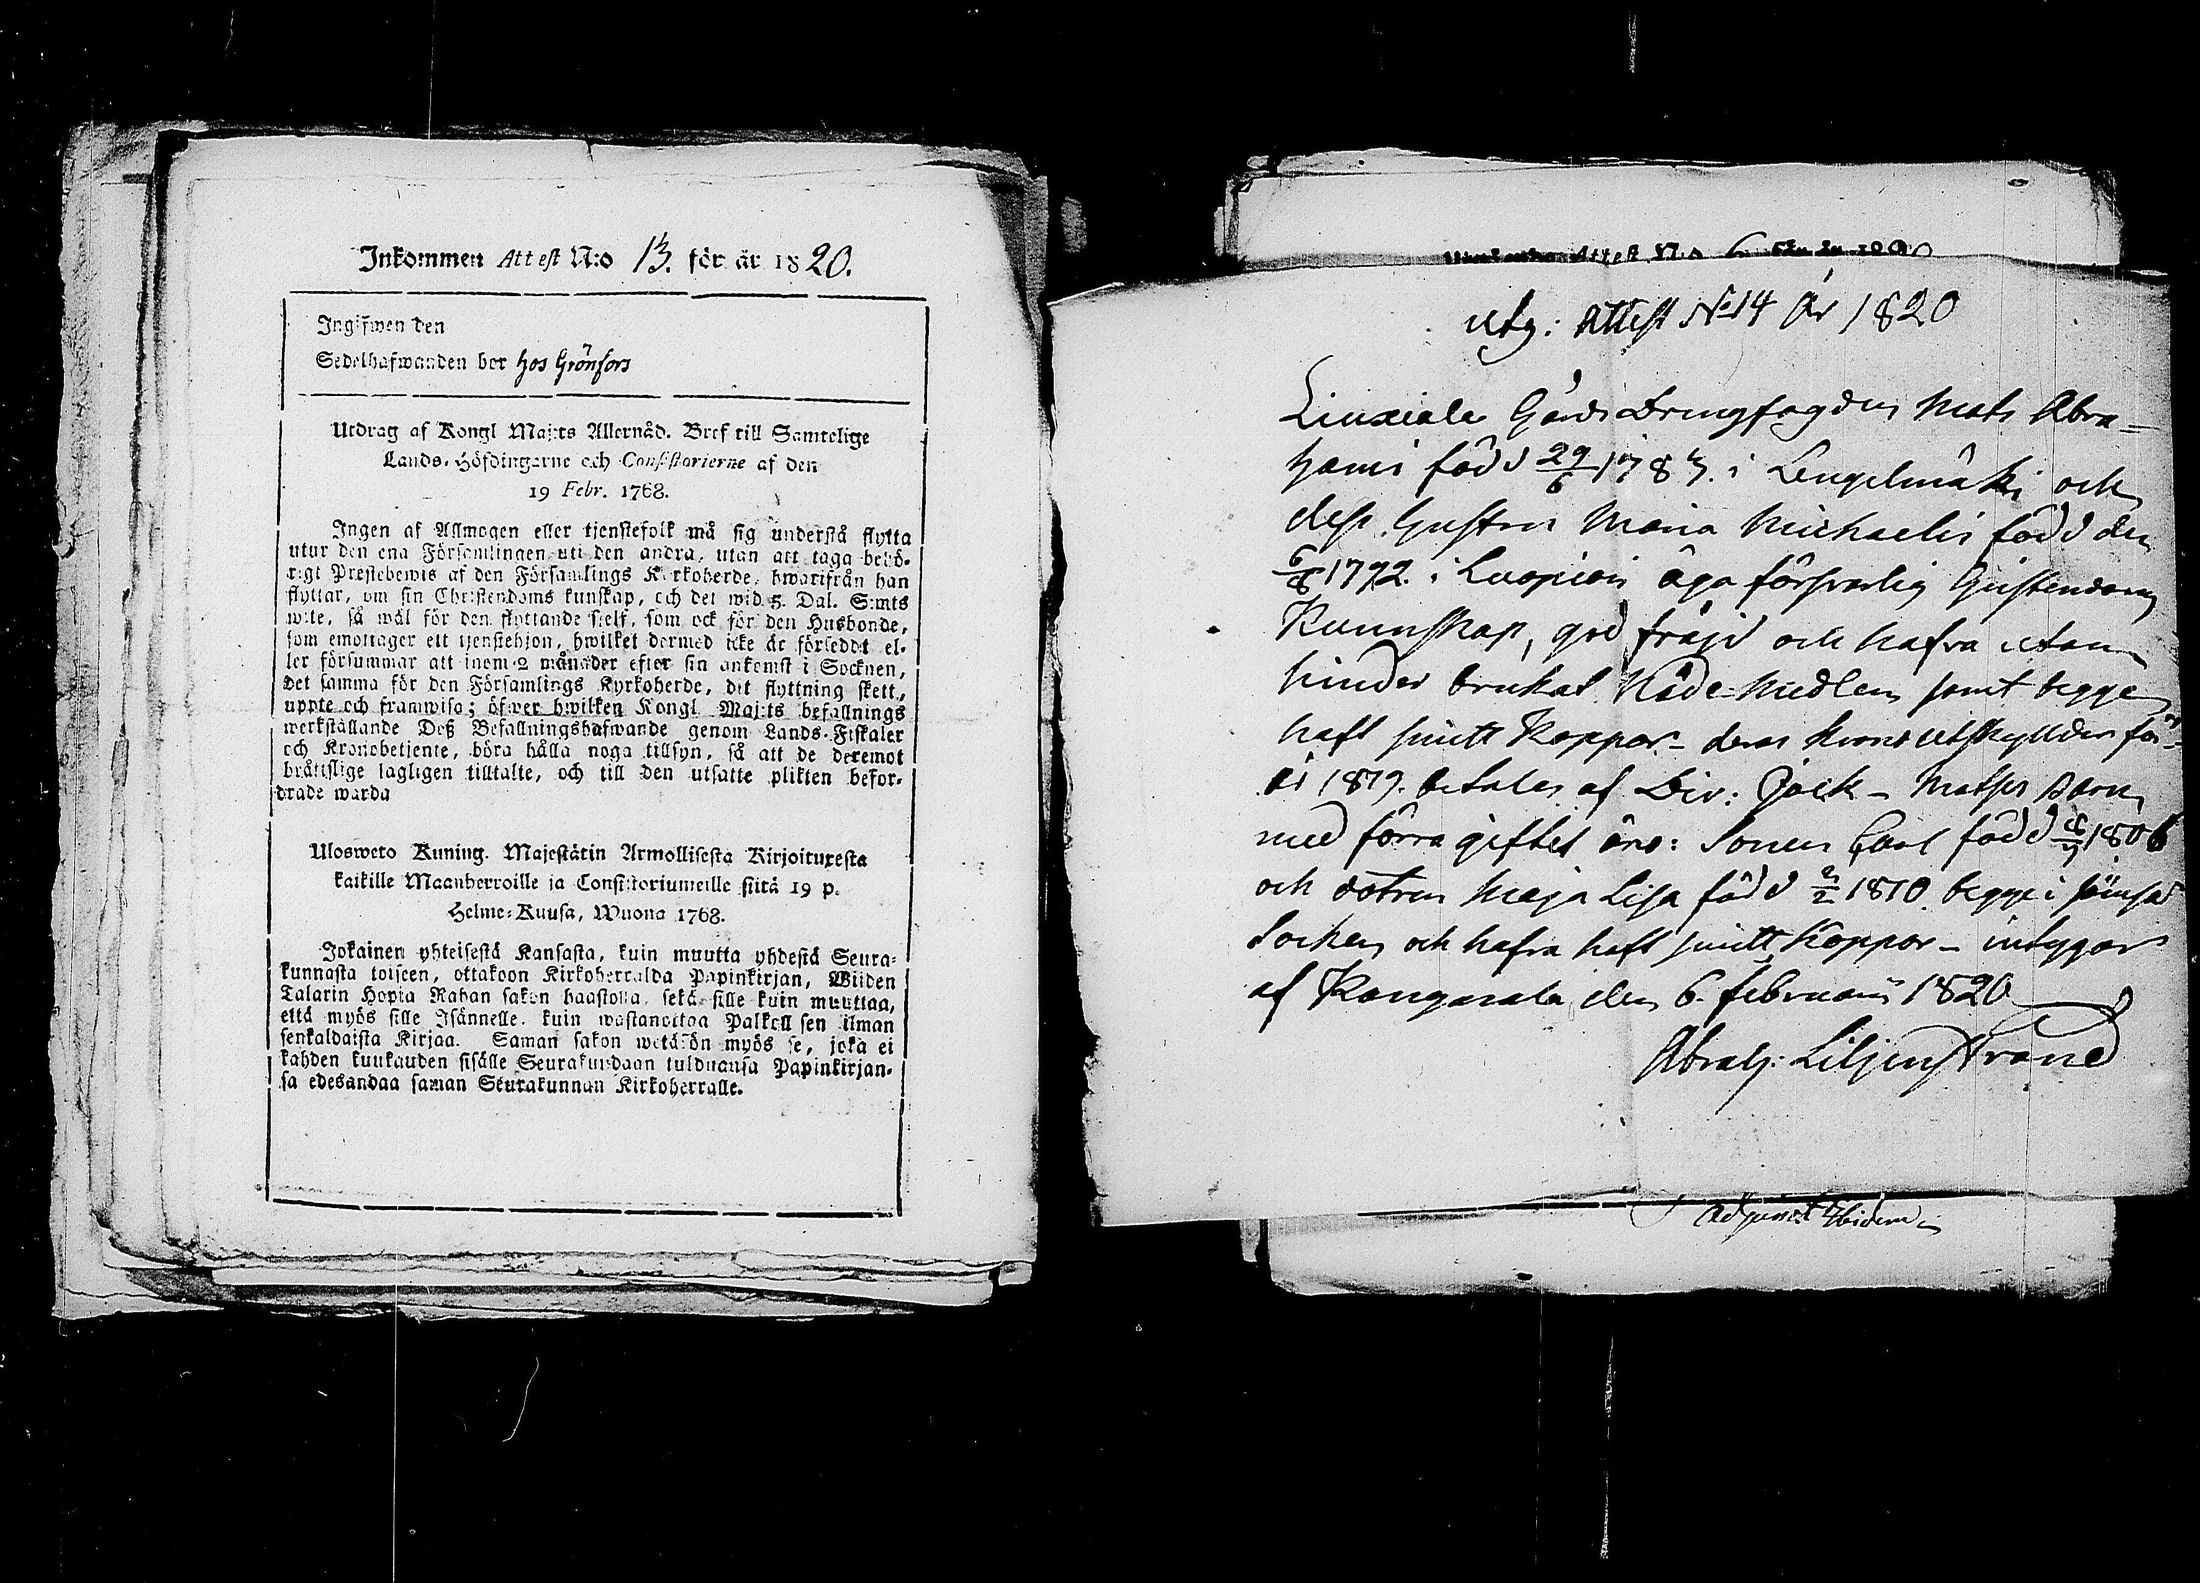 Inkommen Attest N:o 13. för år 1820.
Ingifwen den
Sedelhafwanden bor hos Grönfors
Utdrag af Kongl Maj:ts Allernåd. Bref till Samtelige
Lands-Höfdingarne och Consistorierne af den
19 Febr. 1768.
Ingen af Allmogen eller tjenstefolk må sig understå flytta
utur den ena Församlingen uti den andra, utan att taga behö-
rigt Prestebewis af den Församlings Kyrkoherde, hwarifrån han
flyttar, om sin Christendoms kunskap, och det wid 5. Dal. S:mts
wite, så wäl för den flyttande sielf, som ock för den Husbonde,
som emottager ett tjenstehjon, hwilket dermed icke är förseddt el-
ler försummar att inom 2 månader efter sin ankomst i Socknen,
det samma för den Församlings Kyrkoherde, dit flyttning skett,
uppte och framwisa; öfwer hwilken Kongl Maj:ts befallnings
werkställande Deß Befallningshafwande genom Lands-Fiskaler
och Kronobetjente, böra hålla noga tillsyn, så att de deremot
bråttslige lagligen tilltalte, och till den utsatte plikten befor-
drade warda
Ulosweto Kuning. Majestätin Armollisesta Kirjoituxesta
kaikille Maanherroille ja Consistoriumeille siitä 19 p.
Helme-Kuusa, Wuona 1768.
Jokainen yhteisestä Kansasta, kuin muutta yhdestä Seura-
kunnasta toiseen, ottakoon Kirkoherralda Papinkirjan, Wiiden
Talarin Hopia Rahan sakon haastolla, sekä sille kuin muuttaa,
että myös sille Isännelle, kuin wastanottaa Palkoll sen ilman
senkaldaista Kirjaa. Saman sakon wetäkön myös se, joka ei
kahden kuukauden sisälle Seurakundaan tulduansa Papinkirjan-
sa edesandaa saman Seurakunnan Kirkoherralle.
Attest N:o 6 för år 1820
Utg: Attest No 14 År 1820
Liuxiala Gårds Drengfogden Mats Abra=
hams född 29/6 1783. i Lengelmäki och
dess Hustru Maria Michaelis född den
6/8 1792. i Luopiois äga försvarlig Christendoms
Kunnskap, god fräjd och hafva utan
hinder brukat Nåde Medlen samt begge
haft smitt Koppor – deras Krono utskyllder för
år 1819. betales af Div: Jack – Matses Barn
med förra giftet äro: Sonen Carl född 1806
och dotren Maja Lisa född 2/2 1810 begge i Jämsä
Socken och hafva haft smitt Koppor – intygar
af Kangasala den 6. februarii 1820
Abrah: Liljenstrand
Adjunct Ibidem